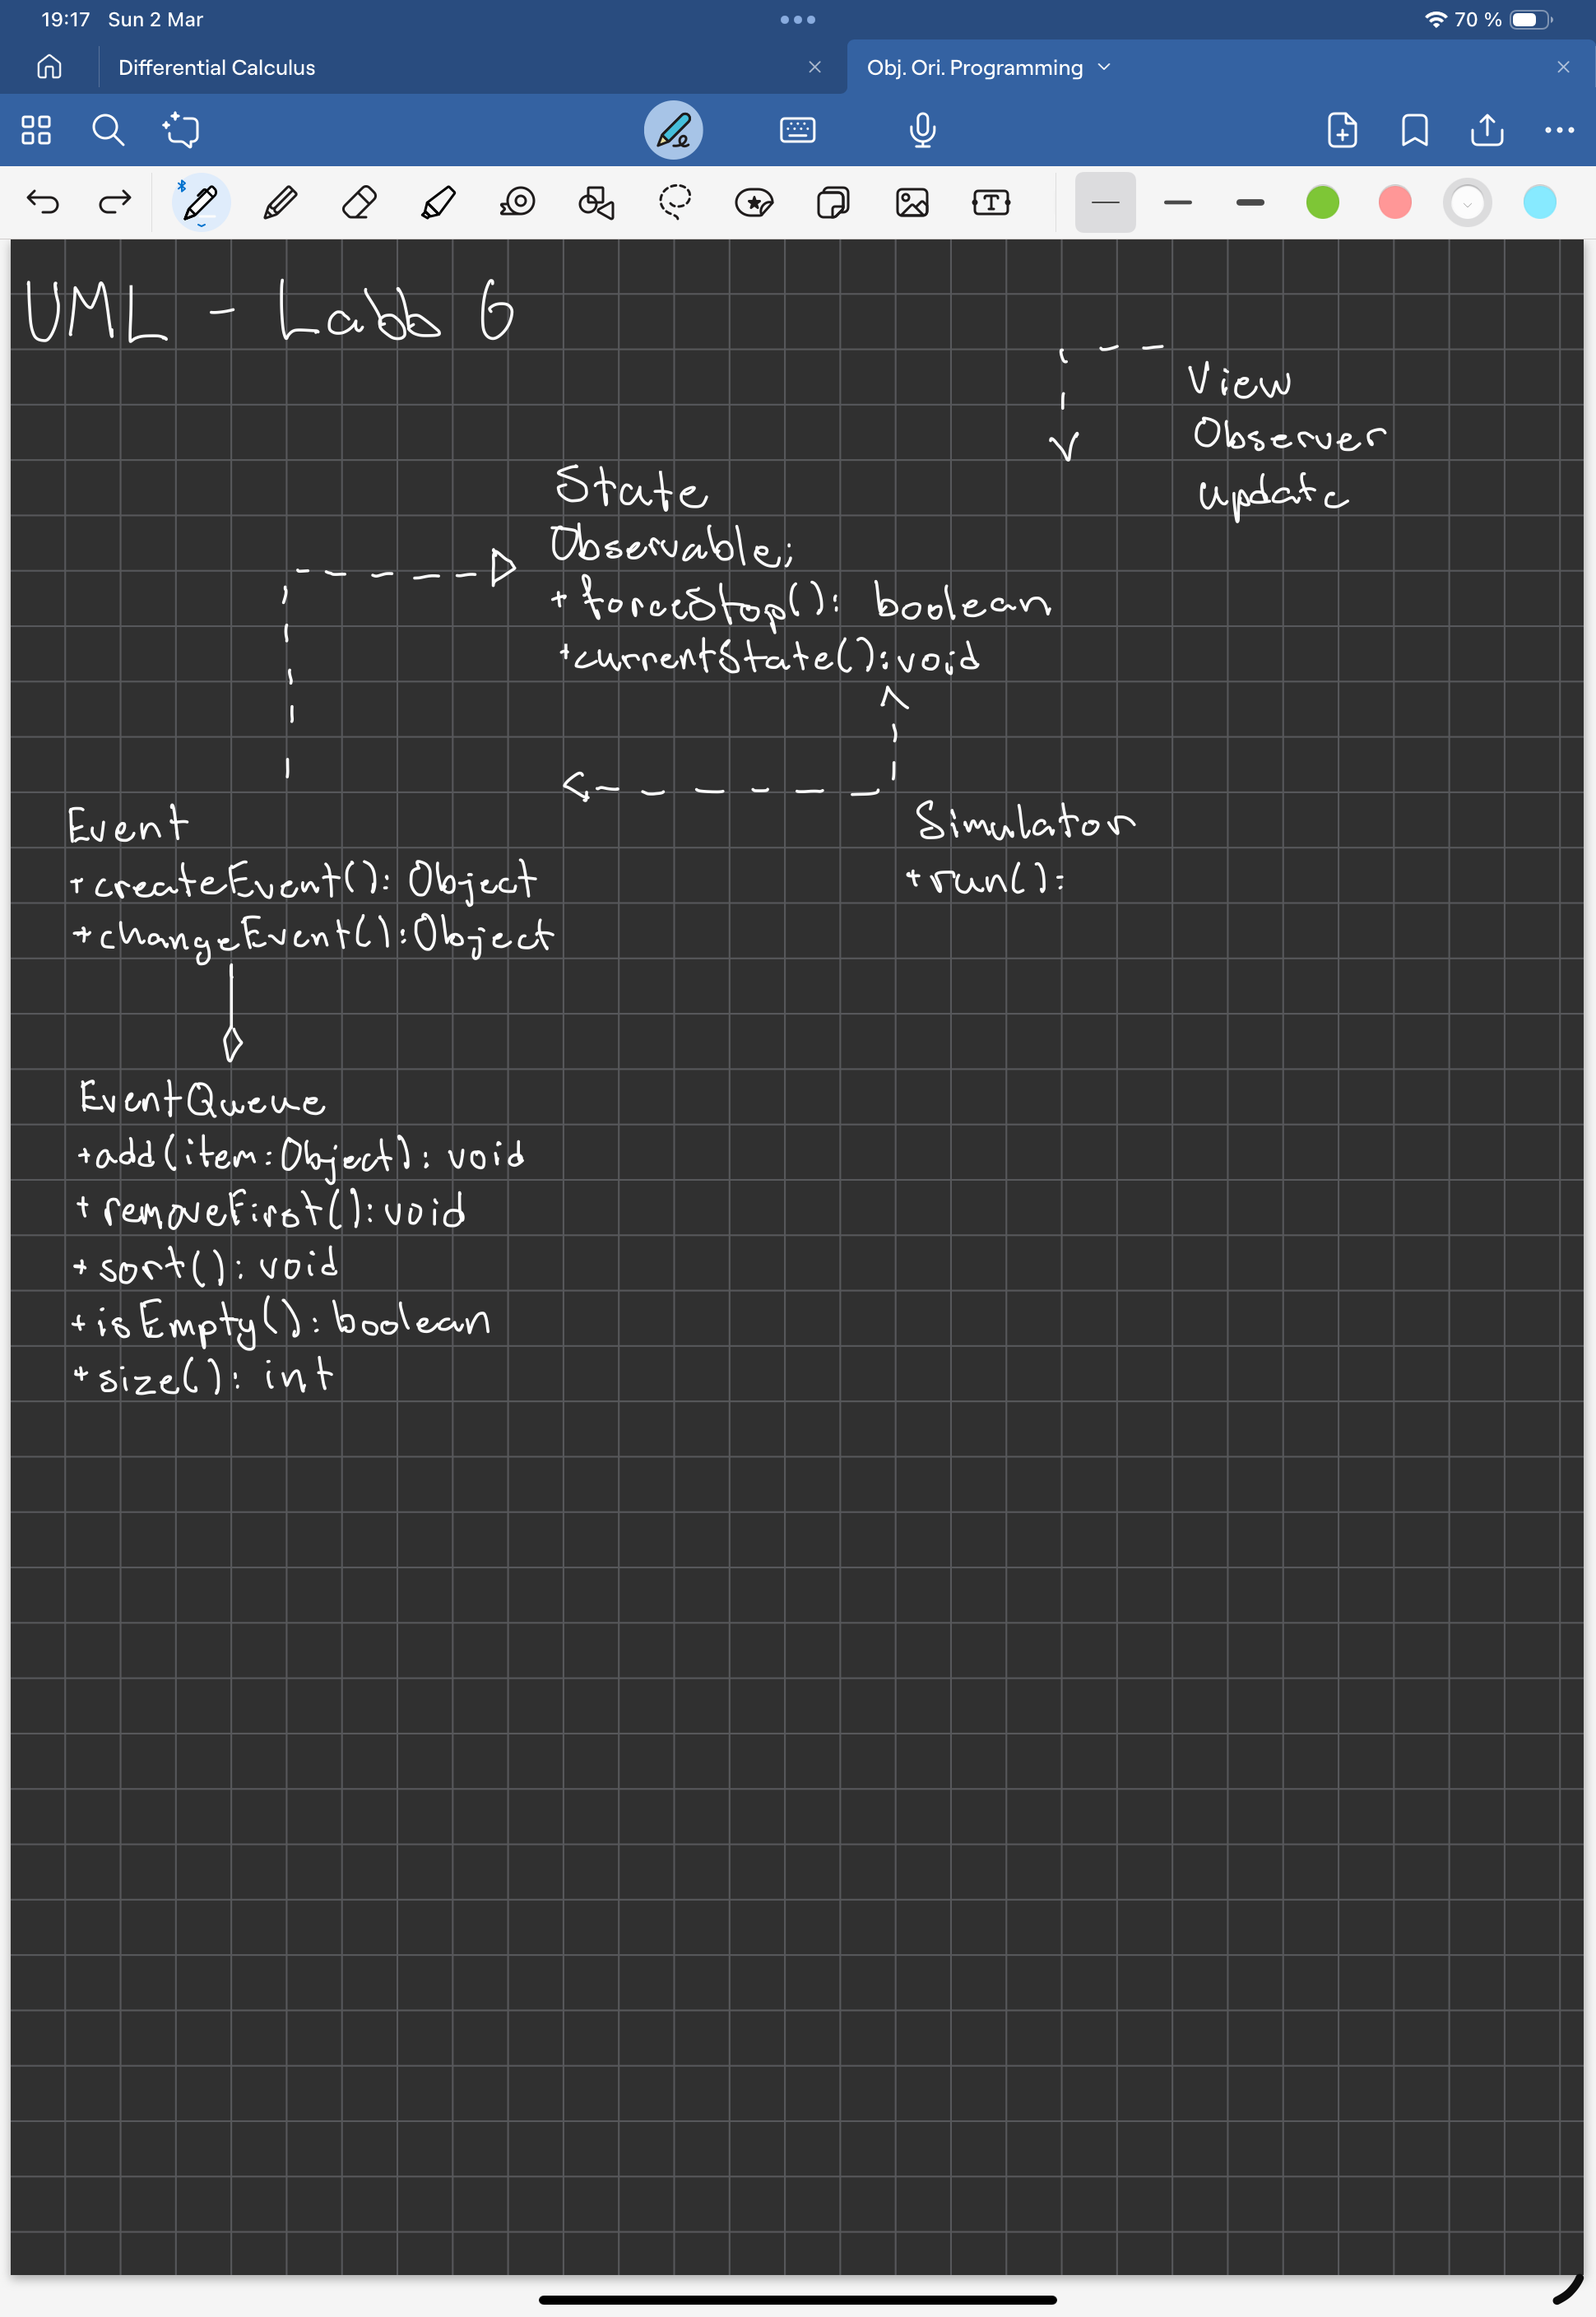 19:17 Sun 2 Mar
70 %
Differential Calculus
Obj. Ori. Programming
UML - Labb 6
View
Observer
update
State
Observable;
+forceStop(): boolean
+currentState():void
Event
+createEvent(): Object
+changeEvent():Object
Simulator
+run():
EventQueue
+add(item:Object): void
+removeFirst():void
+sort(): void
+isEmpty(): boolean
+size(): int